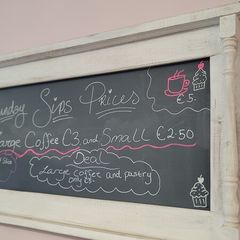 unday Sins Prices
€5.
arge Coffee €3 and Small €2.50
Deal
Large Coffee and pastry
only €5.